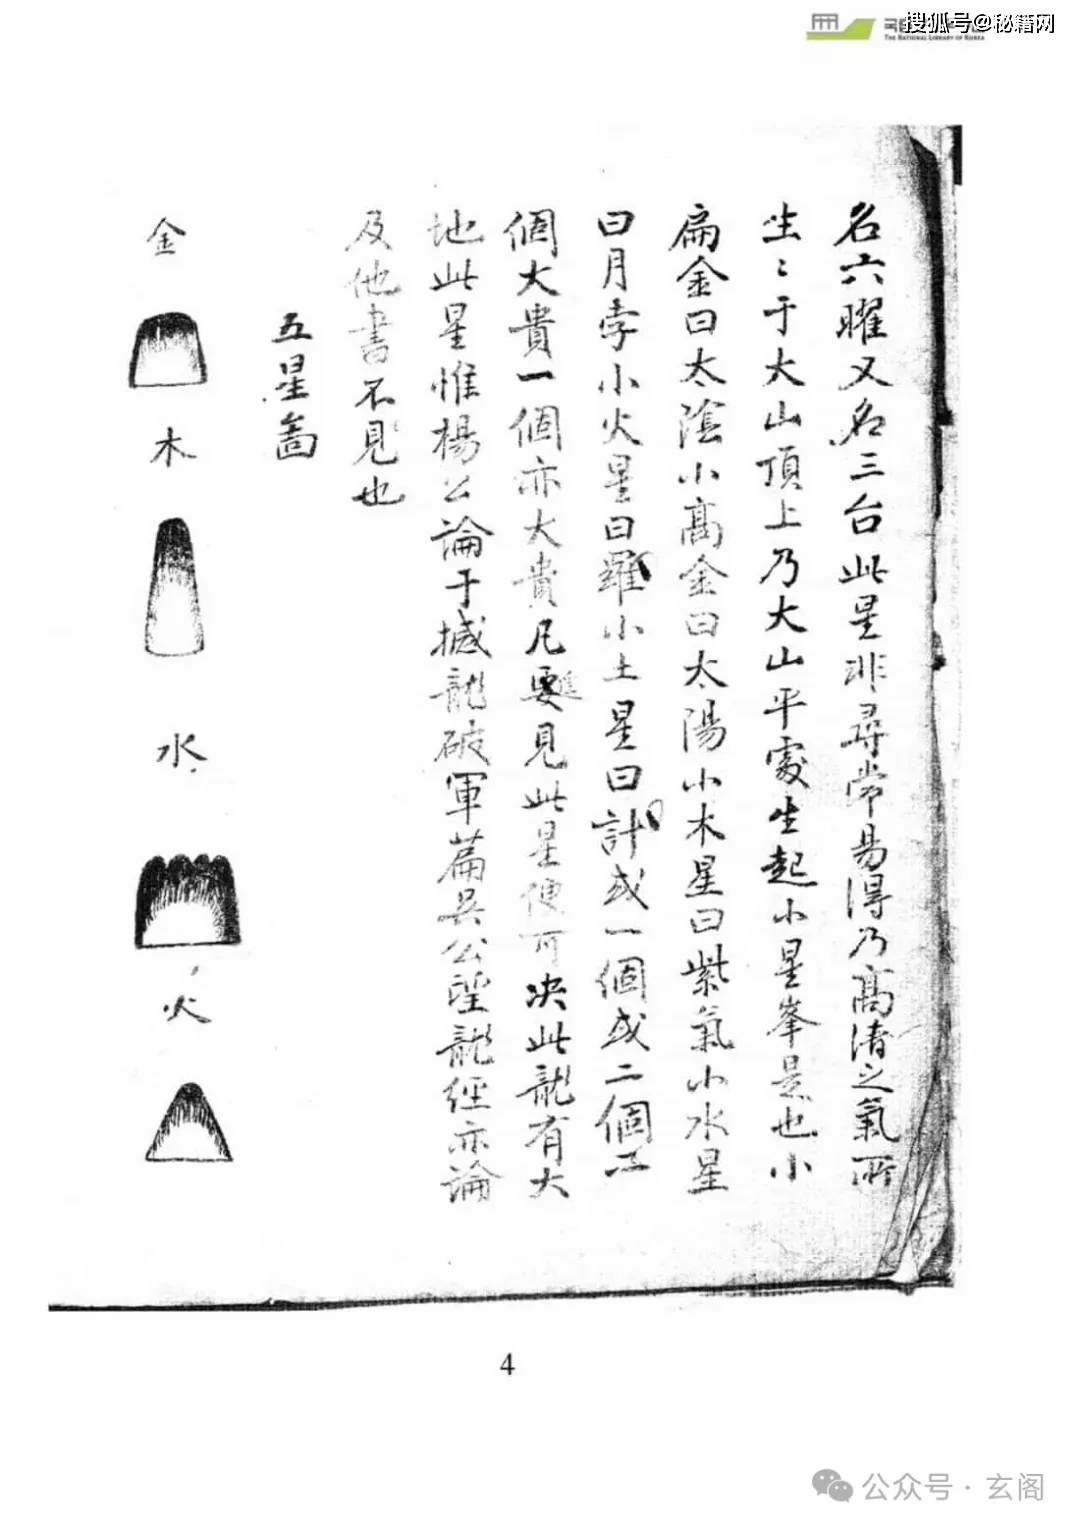 搜狐号@秘籍网
THE NATIONAL LIBRARY OF KOREA
名六曜又名三台此星非尋常易得乃高清之氣所
生〻于大山頂上乃大山平處生起小星峯是也小
扁金曰太陰小高金曰太陽小木星曰紫氣小水星
曰月孛小火星曰羅小土星曰計或一個或二個
個大貴一個亦大貴凡要見此星便可决此龍有大
地此星惟楊公論于撼龍破軍篇吳公望龍經亦論
及他書不見也
五星啚
金
木
水
火
4
公众号·玄阁